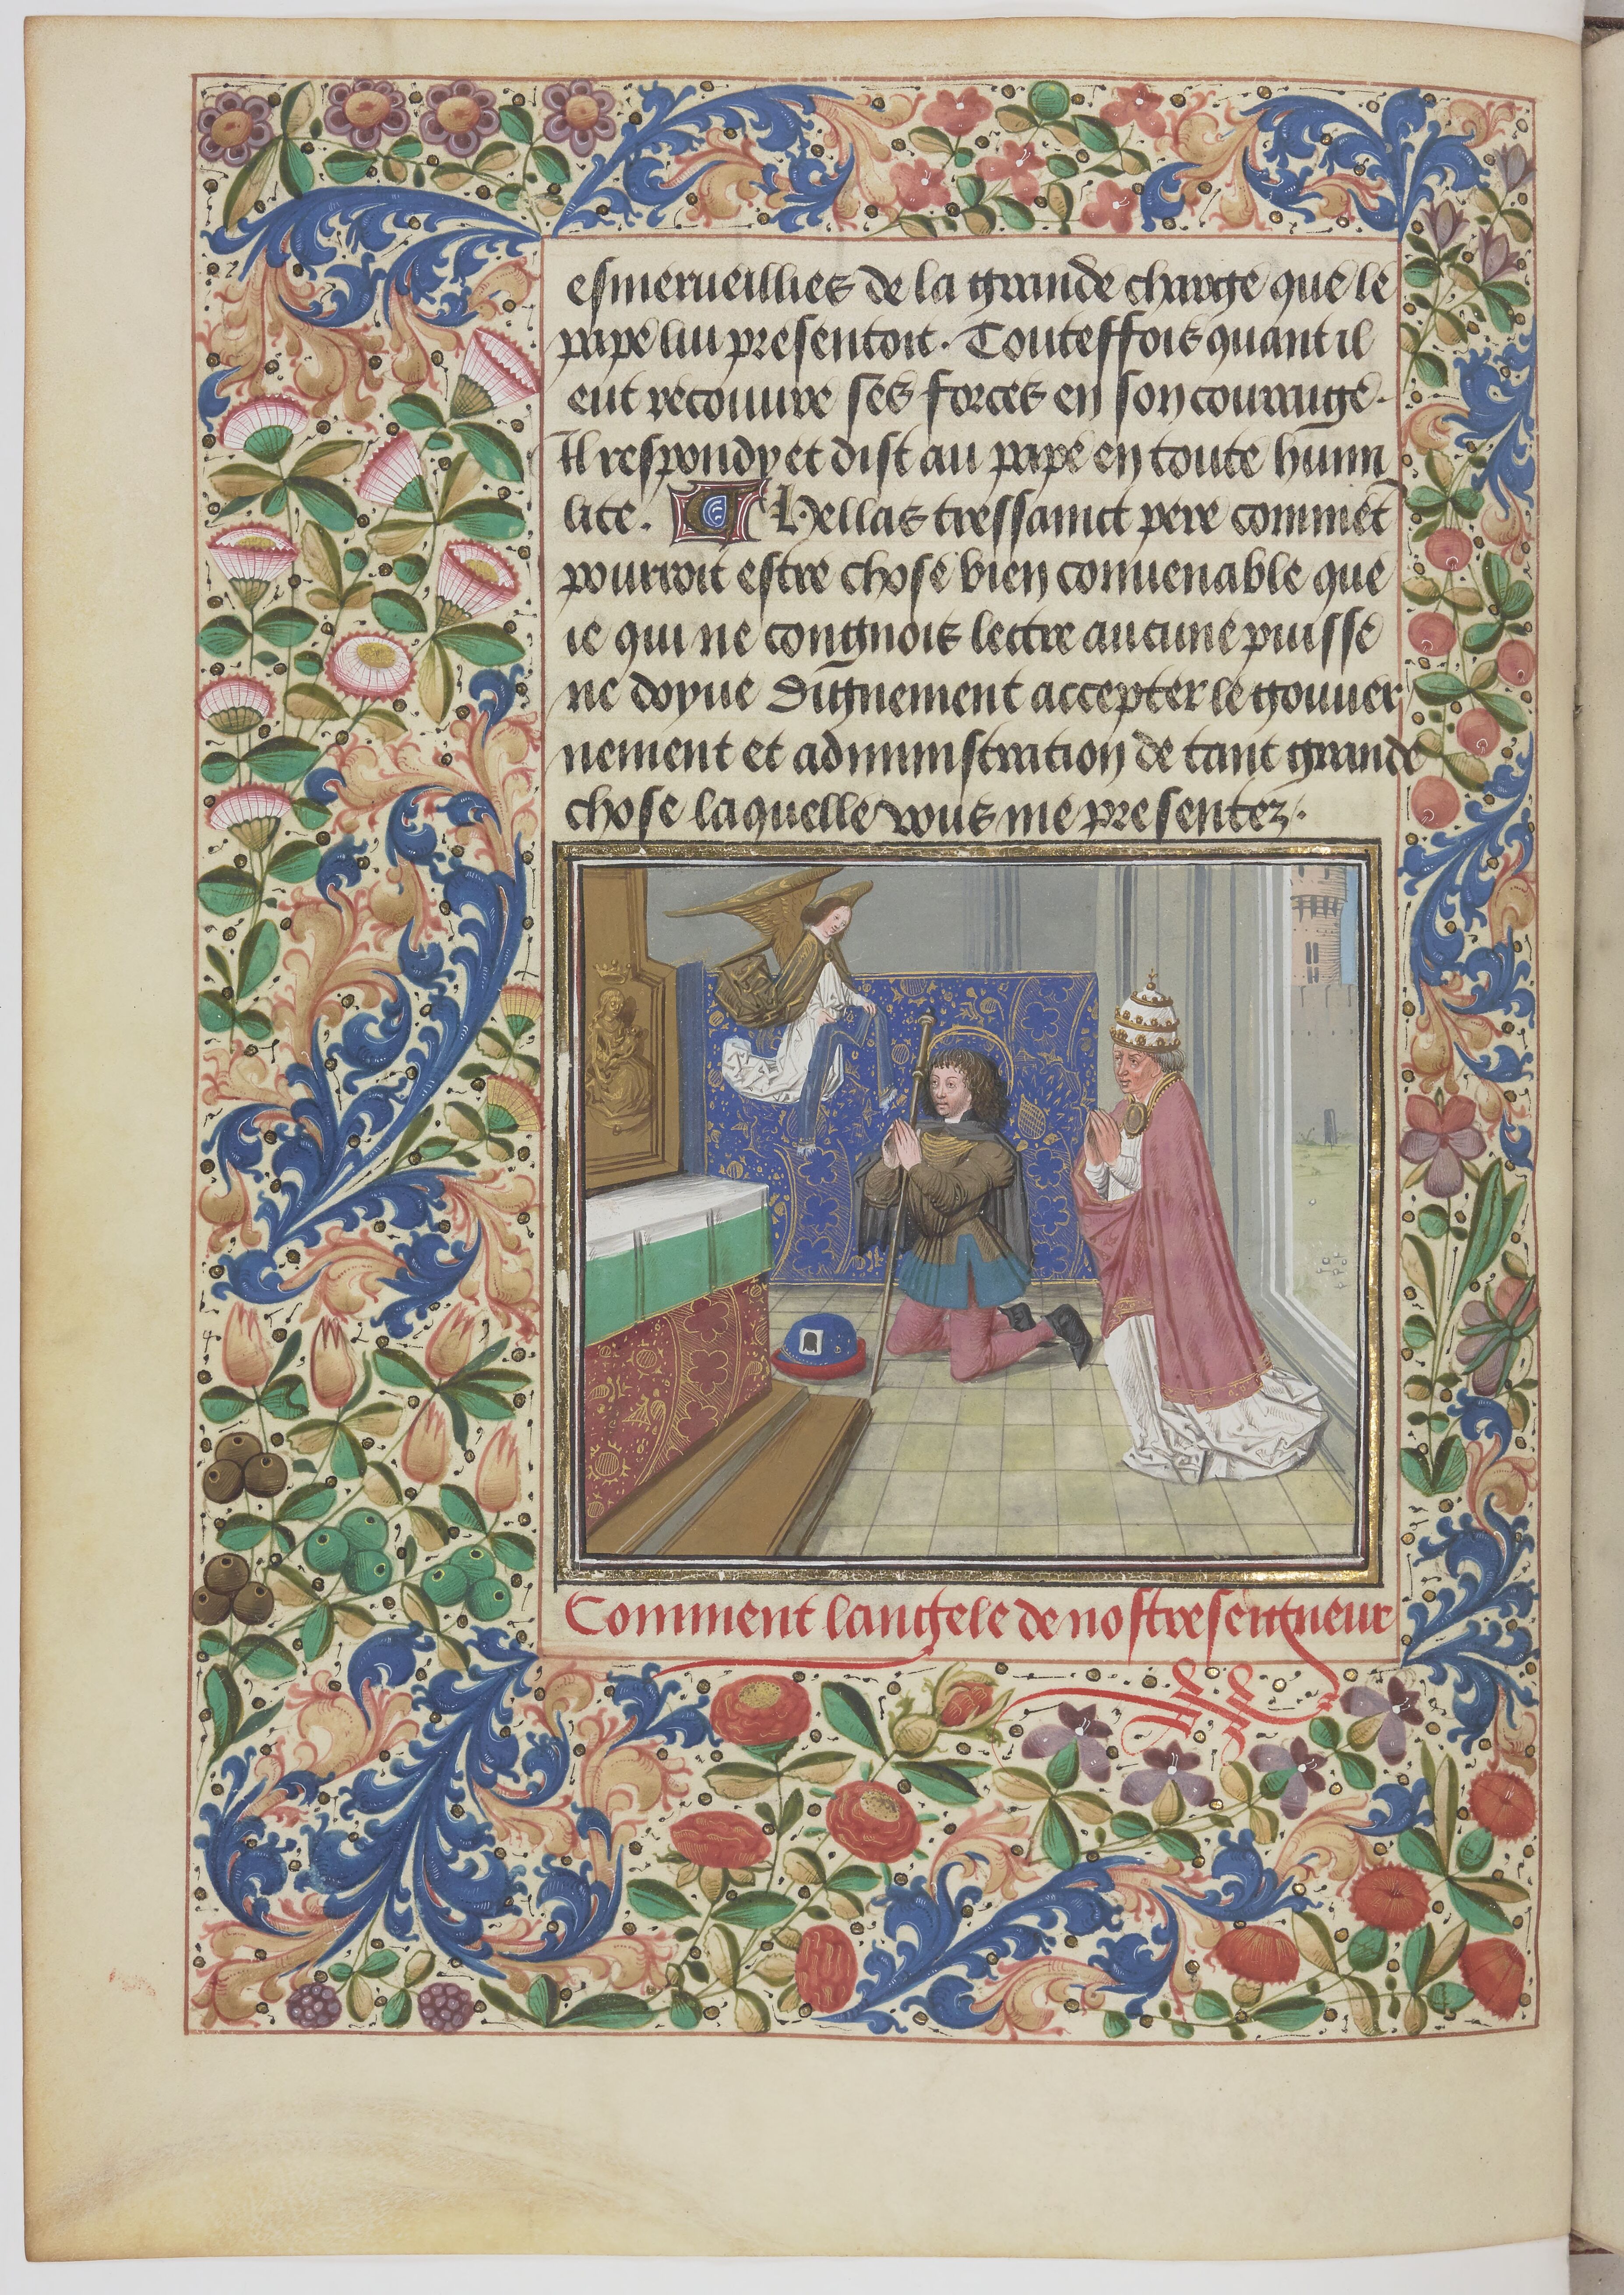 esmerueillies de la grande charge que le
pape luy presentoit. Touteffois quant il
eut recouure ses forces en son courrage.
Il respondy et dist au pape en toute humi
lite. Hellas tressainct pere commēt
pourroit estre chose bien conuenable que
ie qui ne congnois lectre aucune puisse
ne doyue dignement accepter le gouuer
nement et administration de tant grande
chose laquelle vous me presentez.
Comment langele de nostre seigneur